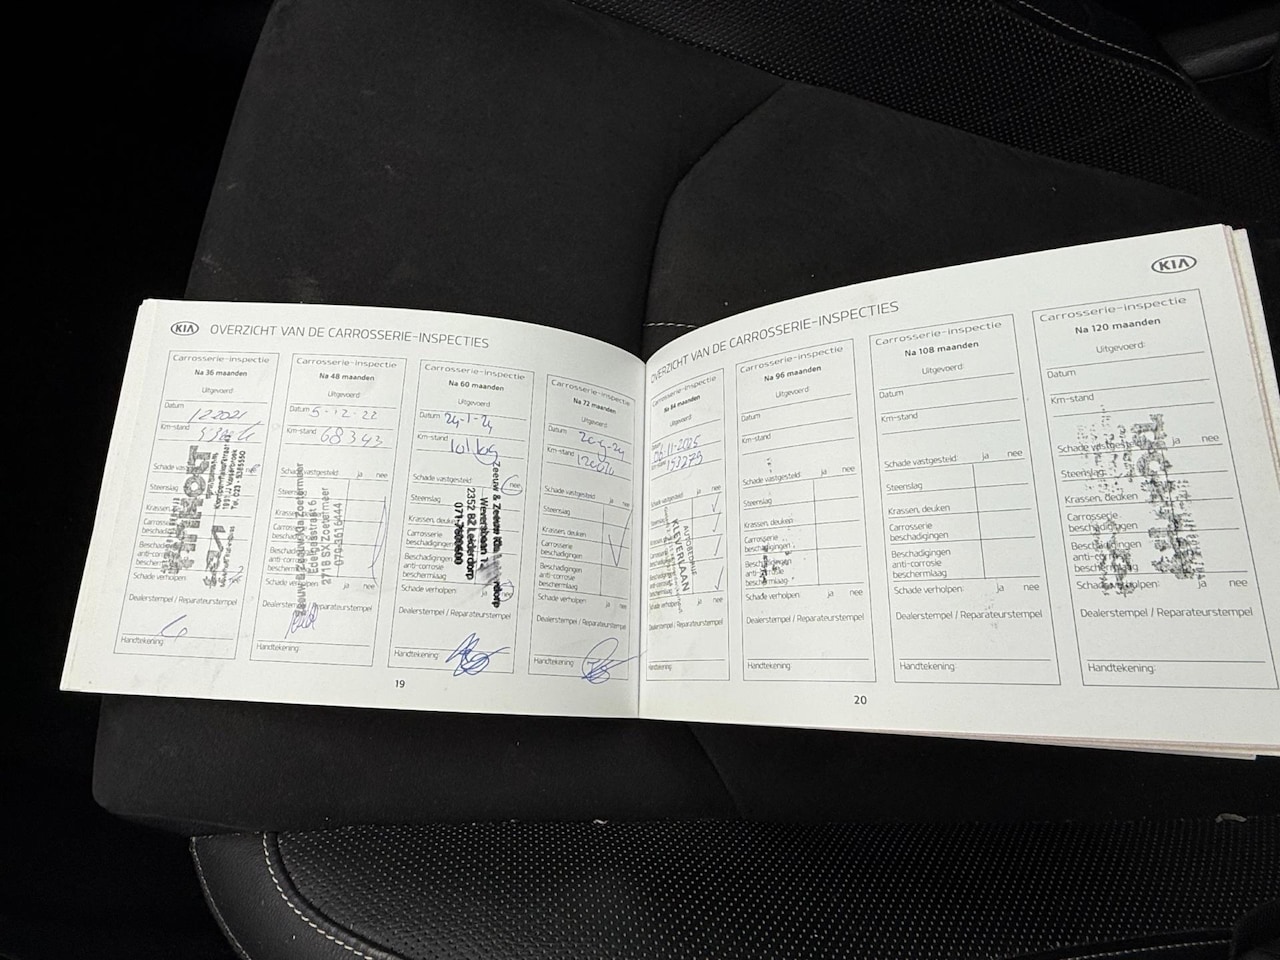 KIA OVERZICHT VAN DE CARROSSERIE-INSPECTIES
Carrosserie-inspectie
Na 36 maanden
Uitgevoerd:
Datum
Km-stand
Schade
Steenslag
Krassen, deuken
Schade verholpen:
Dealerstempel / Reparateurstempel
Handtekening:
Carrosserie-inspectie
Na 48 maanden
Uitgevoerd:
Datum 5-12-22
Km-stand 68343
Schade vastgesteld: ja nee
Steenslag
Krassen, deuken
Schade verholpen: ja nee
Zoetermeer
Edelgasstraat 6
2718 SX Zoetermeer
079-3616444
Dealerstempel / Reparateurstempel
Handtekening:
Carrosserie-inspectie
Na 60 maanden
Uitgevoerd:
Datum 24-1-24
Km-stand
Schade vastgesteld: nee
Steenslag
Krassen, deuken
Carrosserie
beschadigingen
Beschadigingen
anti-corrosie
beschermlaag
Schade verholpen: ja nee
Zeeuw & Zeeuw
Weversbaan
2352 BZ Leiderdorp
Dealerstempel / Reparateurstempel
Handtekening:
Carrosserie-inspectie
Na 72 maanden
Uitgevoerd:
Datum
Km-stand
Schade vastgesteld: ja nee
Steenslag
Krassen, deuken
Carrosserie
beschadigingen
Beschadigingen
anti-corrosie
beschermlaag
Schade verholpen: ja nee
Dealerstempel / Reparateurstempel
Handtekening:
19
OVERZICHT VAN DE CARROSSERIE-INSPECTIES KIA
Carrosserie-inspectie
Na 84 maanden
Uitgevoerd:
Datum
Km-stand
Schade vastgesteld: ja nee
Steenslag
AUTOBEDRIJF
KLEVERLAAN
Schade verholpen: ja nee
Dealerstempel / Reparateurstempel
Handtekening:
Carrosserie-inspectie
Na 96 maanden
Uitgevoerd:
Datum
Km-stand
Schade vastgesteld: ja nee
Steenslag
Krassen, deuken
Carrosserie
beschadigingen
Beschadigingen
anti-corrosie
beschermlaag
Schade verholpen: ja nee
Dealerstempel / Reparateurstempel
Handtekening:
Carrosserie-inspectie
Na 108 maanden
Uitgevoerd:
Datum
Km-stand
Schade vastgesteld: ja nee
Steenslag
Krassen, deuken
Carrosserie
beschadigingen
Beschadigingen
anti-corrosie
beschermlaag
Schade verholpen: ja nee
Dealerstempel / Reparateurstempel
Handtekening:
Carrosserie-inspectie
Na 120 maanden
Uitgevoerd:
Datum
Km-stand
Schade vastgesteld: ja nee
Steenslag
Krassen, deuken
Carrosserie
beschadigingen
Beschadigingen
anti-corrosie
beschermlaag
Schade verholpen: ja nee
Dealerstempel / Reparateurstempel
Handtekening:
20